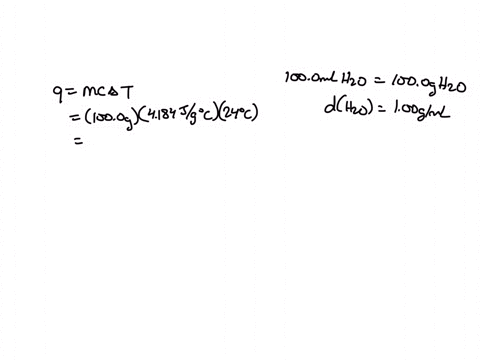 q = mcΔT
= (100.0g)(4.184 J/g°C)(24°C)
=
100.0mL H2O = 100.0g H2O
d(H2O) = 1.00g/mL